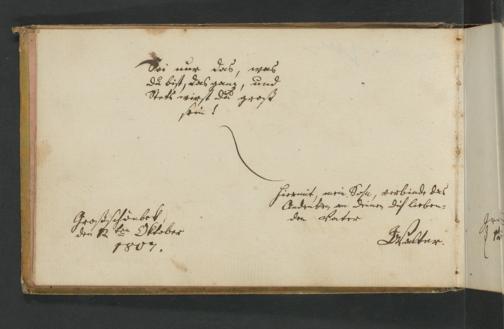 Sei nur das, was
du bist, das ganz, und
stets wirst du groß
sein!
Hiermit, mein Sohn, verbinde das
Andenken an deinen dich lieben-
den Vater
Walter.
Großschönebek,
den 12ten Oktober
1807.